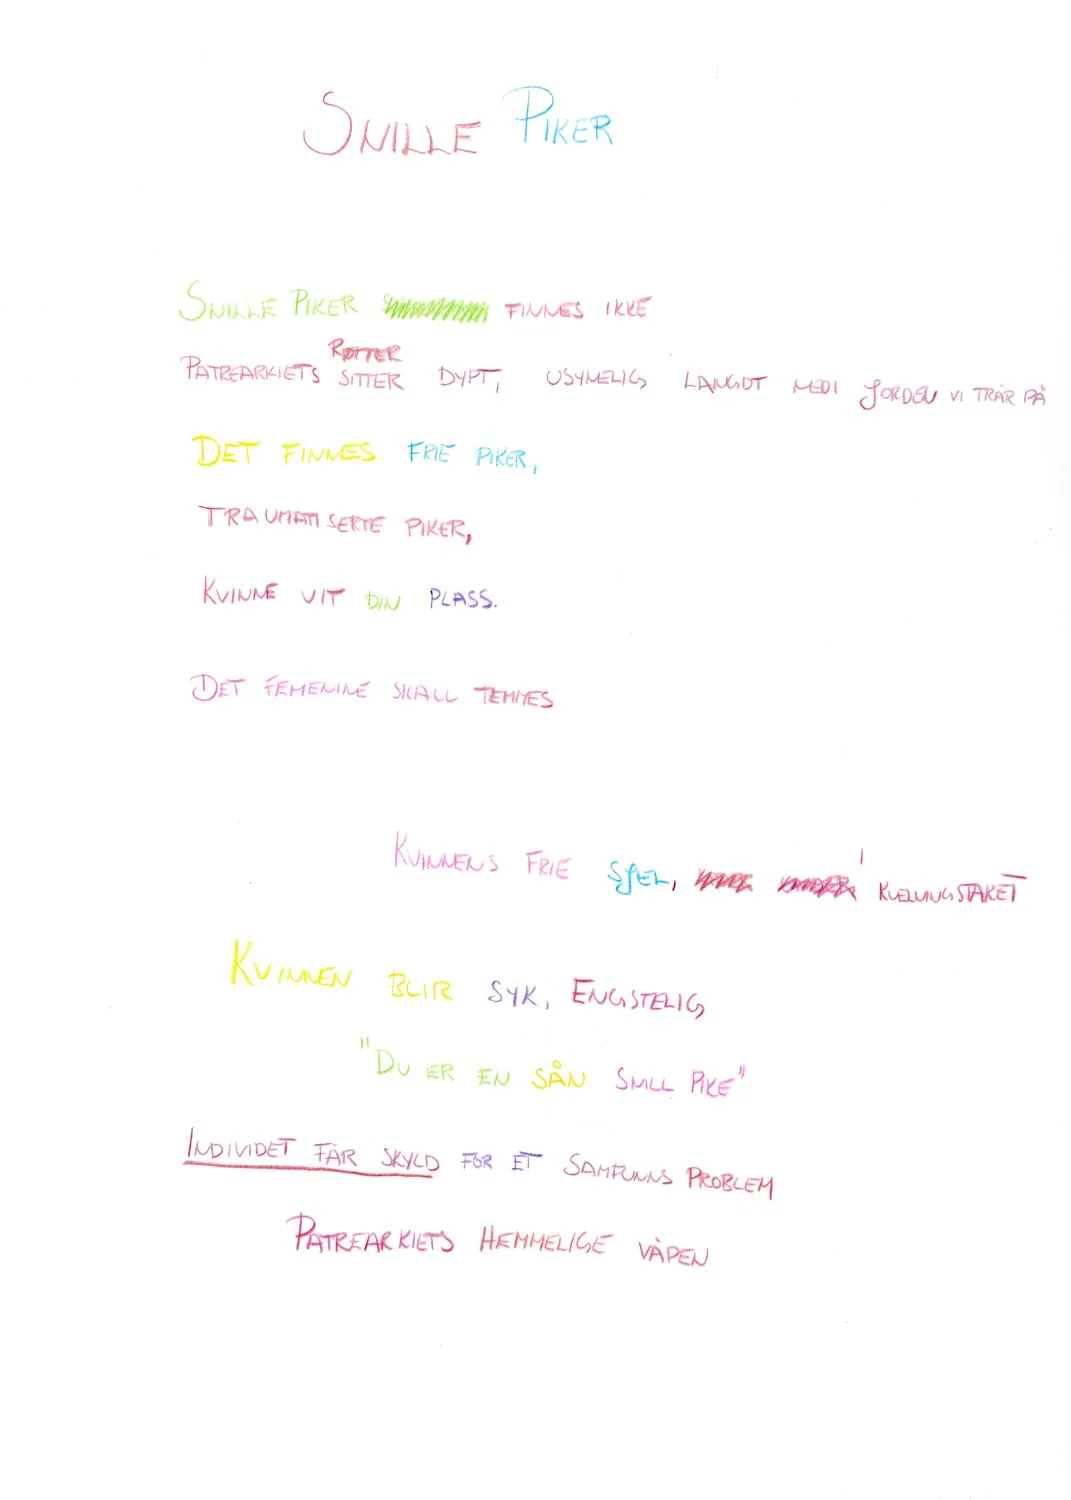 SNILLE PIKER
SNILLE PIKER FINNES IKKE
RØTTER
PATREARKIETS SITTER DYPT, USYNELIG LANGDT NEDI JORDEN VI TRÅR PÅ
DET FINNES FRIE PIKER,
TRAUMATISERTE PIKER,
KVINNE VIT DIN PLASS.
DET FEMENINE SKALL TEMMES
KVINNENS FRIE SJEL, I KVELNINGSTAKET
KVINNEN BLIR SYK, ENGSTELIG
"DU ER EN SÅN SNILL PIKE"
INDIVIDET FÅR SKYLD FOR ET SAMFUNNS PROBLEM
PATREARKIETS HEMMELIGE VÅPEN